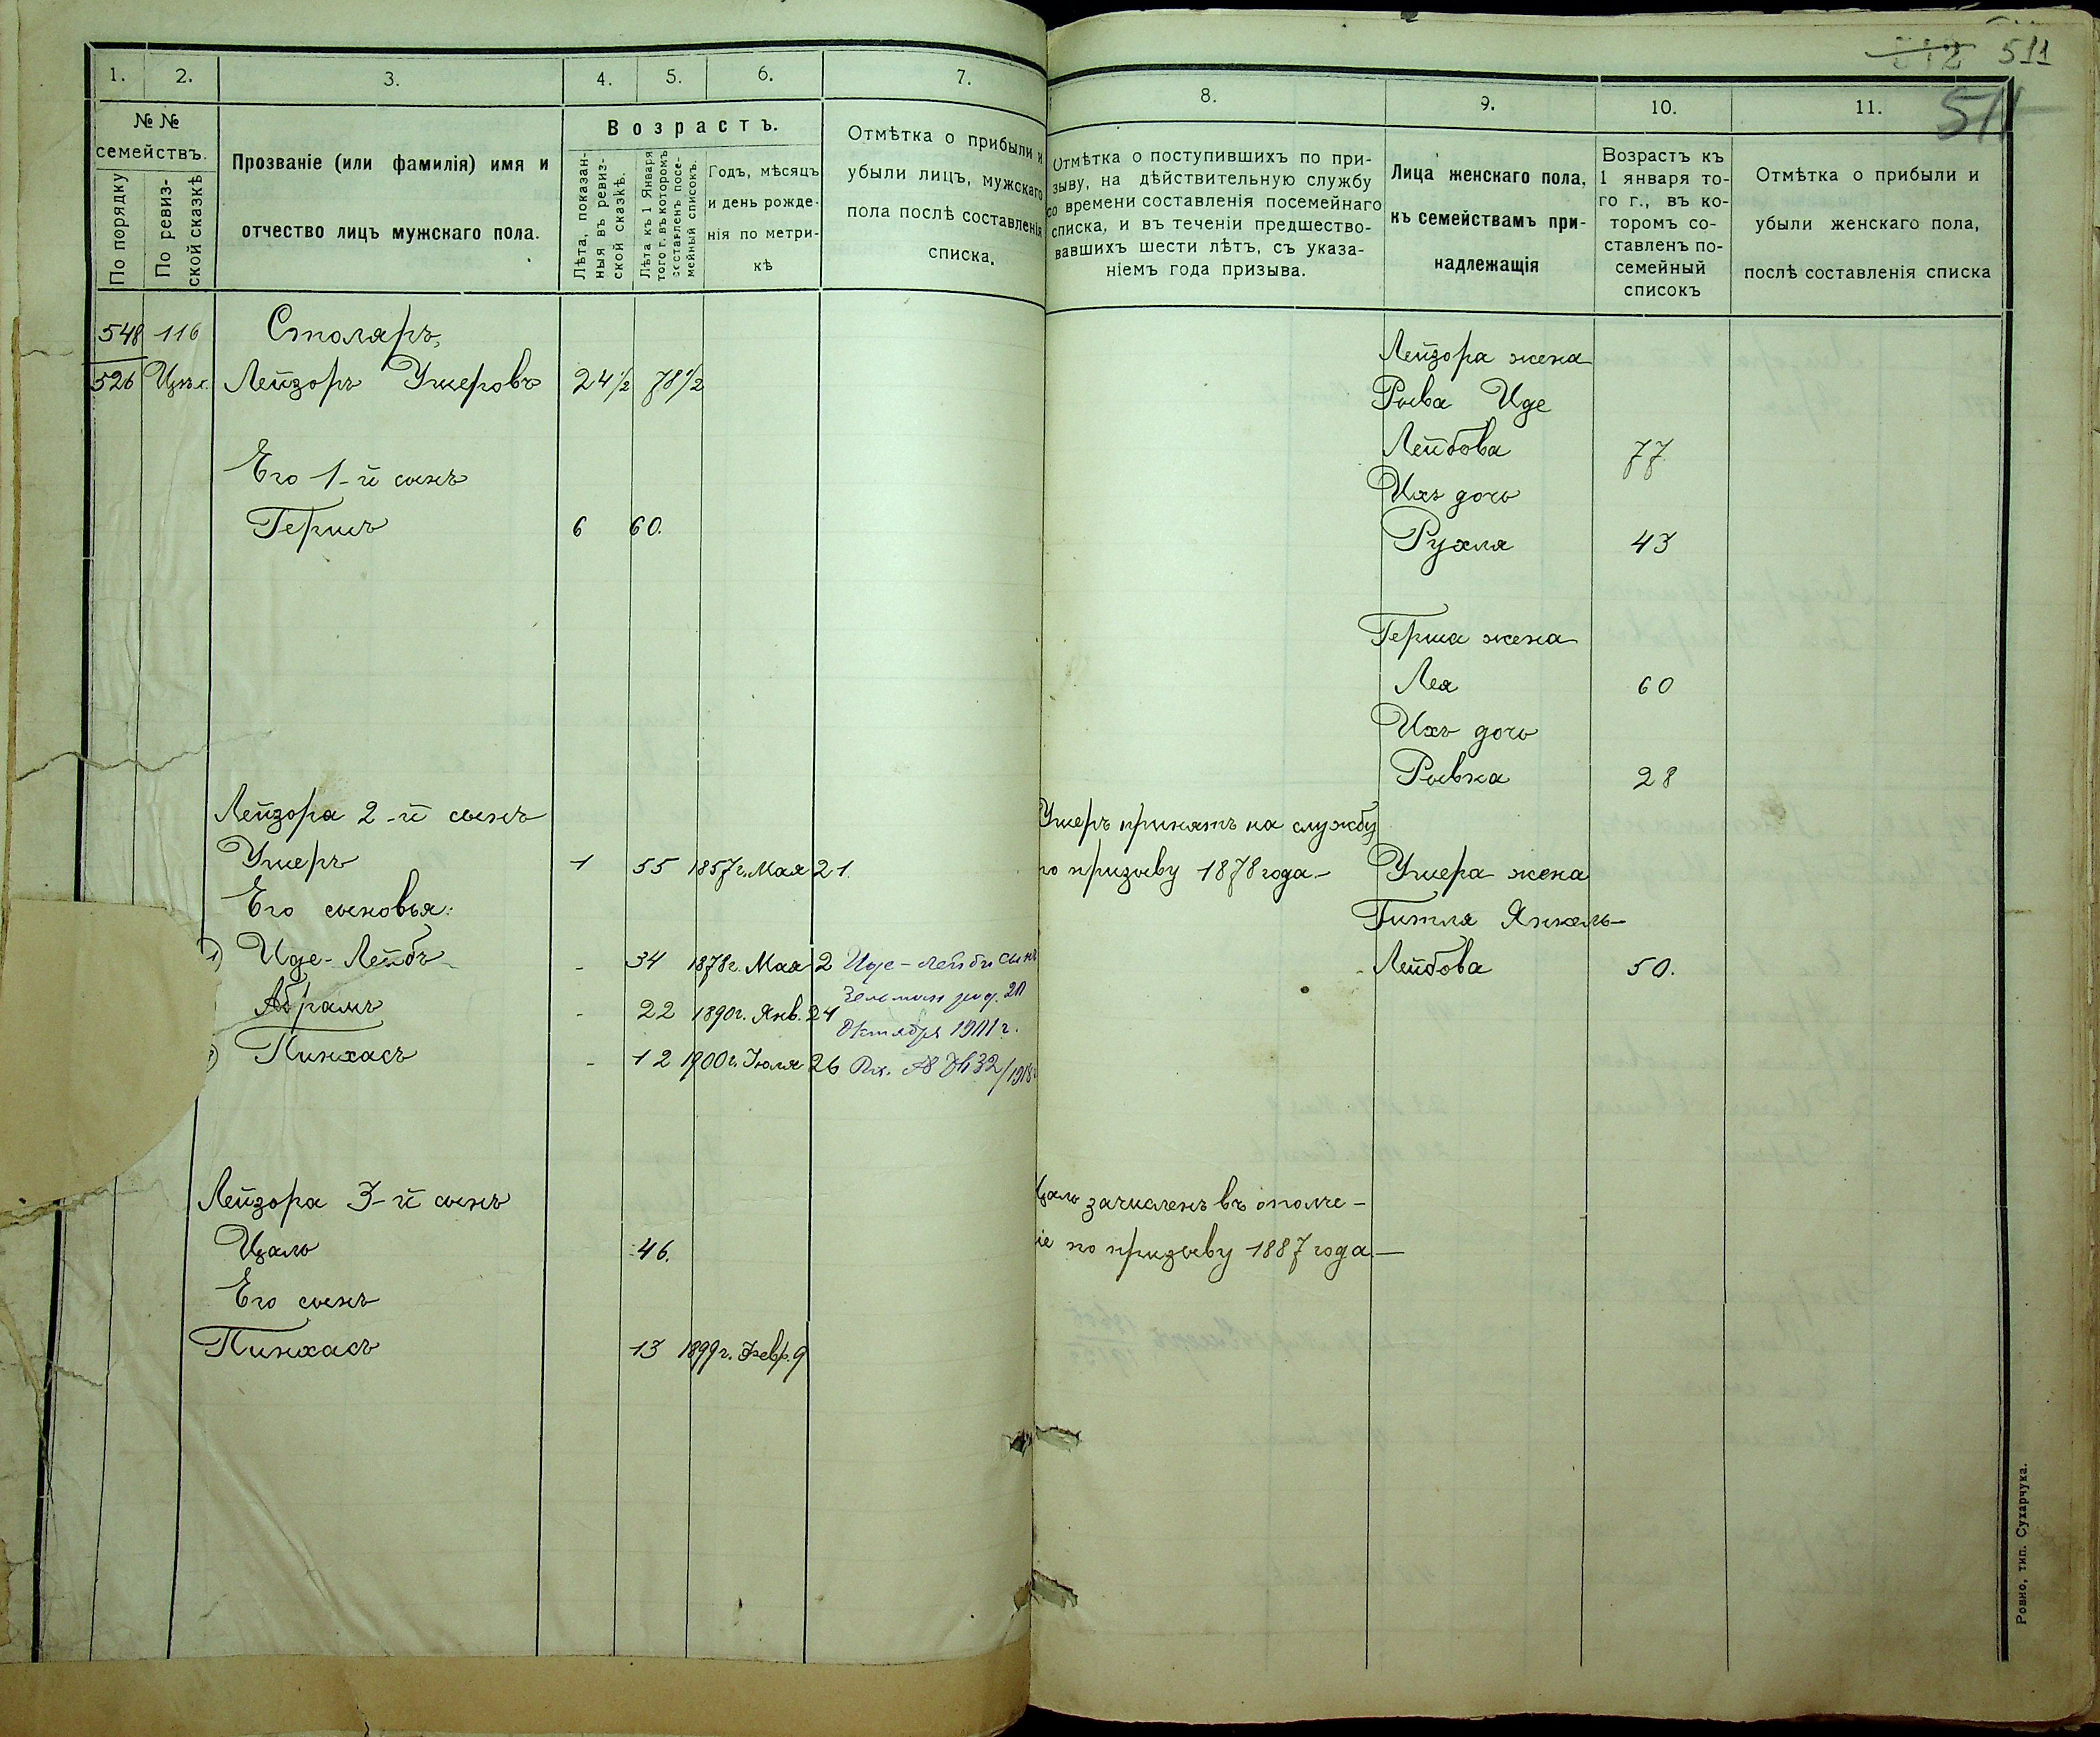 512 511
511
1. 2. 3. 4. 5. 6. 7.
№ №
семействъ.
По порядку
По ревиз-
ской сказкѣ
Прозваніе (или фамилія) имя и
отчество лицъ мужскаго пола.
Возрастъ.
Лѣта, показан-
ныя въ ревиз-
ской сказкѣ.
Лѣта къ 1 Января
того г. въ которомъ
составленъ посе-
мейный списокъ.
Годъ, мѣсяцъ
и день рожде-
нія по метри-
кѣ
Отмѣтка о прибыли и
убыли лицъ, мужскаго
пола послѣ составленія
списка.
548 116 Столяръ,
526 Лейзоръ Ушеровъ 24 1/2 78 1/2
Его 1-й сынъ
Гершъ 6 60.
Лейзора 2-й сынъ
Ушеръ 1 55 1857 г. Мая 21.
Его сыновья:
1) Иде-Лейбъ - 34 1878 г. Мая 2
Абрамъ - 22 1890 г. Янв. 24
Пинхасъ - 12 1900 г. Іюля 26
Иде-Лейбы сынъ
Зельман род. 20
Октября 1901 г.
Лейзора 3-й сынъ
Ицаль 46.
Его сынъ
Пинхасъ 13 1899 г. Февр. 9
8. 9. 10. 11.
Отмѣтка о поступившихъ по при-
зыву, на дѣйствительную службу
со времени составленія посемейнаго
списка, и въ теченіи предшество-
вавшихъ шести лѣтъ, съ указа-
ніемъ года призыва.
Лица женскаго пола,
къ семействамъ при-
надлежащія
Возрастъ къ
1 января то-
го г., въ ко-
торомъ со-
ставленъ по-
семейный
списокъ
Отмѣтка о прибыли и
убыли женскаго пола,
послѣ составленія списка
Лейзора жена
Рывa Иде
Лейбова 77
Ихъ дочь
Рухля 43
Герша жена
Лея 60
Ихъ дочь
Рывка 28
Ушеръ принятъ на службу
по призыву 1878 года.-
Ушера жена
Гитля Янкель-
Лейбова 50.
Ицаль зачисленъ въ ополче-
ніе по призыву 1887 года.-
Ровно, тип. Сухарчука.